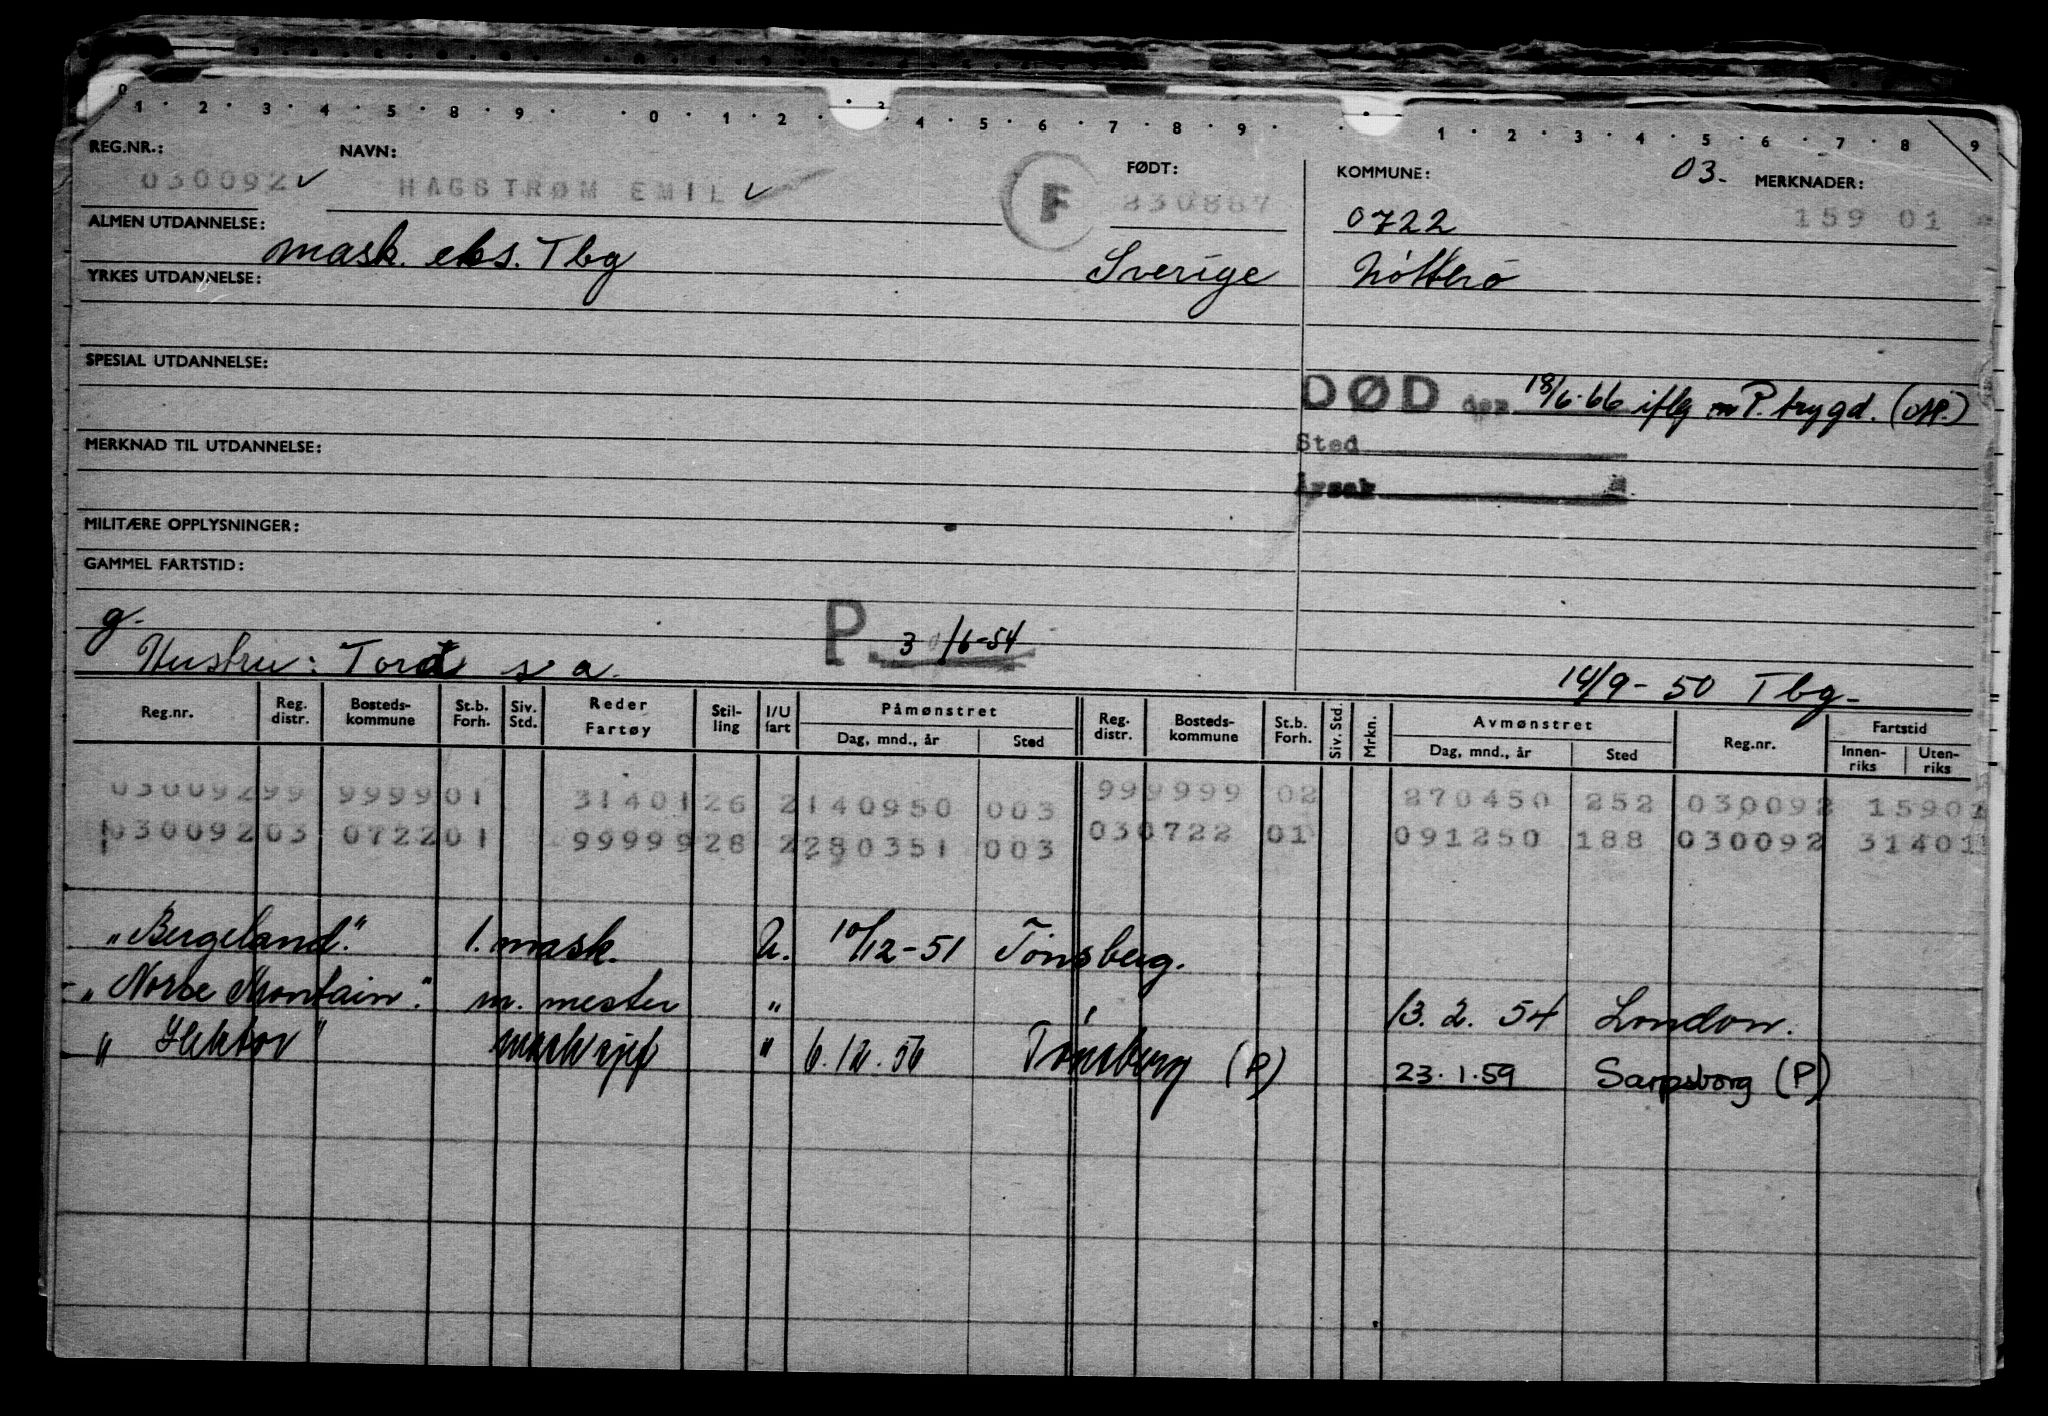 REG.NR.: NAVN: FØDT: KOMMUNE: 03. MERKNADER:
030092 HAGSTRØM EMIL F 230887 0722 159 01
ALMEN UTDANNELSE: mask. eks. Tbg Sverige Nøtterø
YRKES UTDANNELSE:
SPESIAL UTDANNELSE:
DØD den 18/6-66 iflg P. trygd.
MERKNAD TIL UTDANNELSE:
Sted
Årsak
MILITÆRE OPPLYSNINGER:
GAMMEL FARTSTID:
g.
P 3 /6-54
Hustru: s a.
14/9-50 Tbg-
Reg.nr. Reg. distr. Bosteds-kommune St.b. Forh. Siv. Std. Reder Fartøy Stil-ling I/U fart Påmønstret Dag, mnd., år Sted Reg. distr. Bosteds-kommune St.b. Forh. Siv. Std. Mrkn. Avmønstret Dag, mnd., år Sted Reg.nr. Fartstid Innen-riks Uten-riks
03009299 999901 3140126 2140950 003 999999 02 270450 252 030092 15901
03009203 072201 9999928 2280351 003 030722 01 091250 188 030092 31401
"Bergeland." 1. mask. U. 10/12-51 Tönsberg.
"Norse Montain." m. mester " " 13. 2. 54 London.
"Hektor" masksjef " 6.12.56 Tønsberg (P) 23.1.59 Sarpsborg (P)